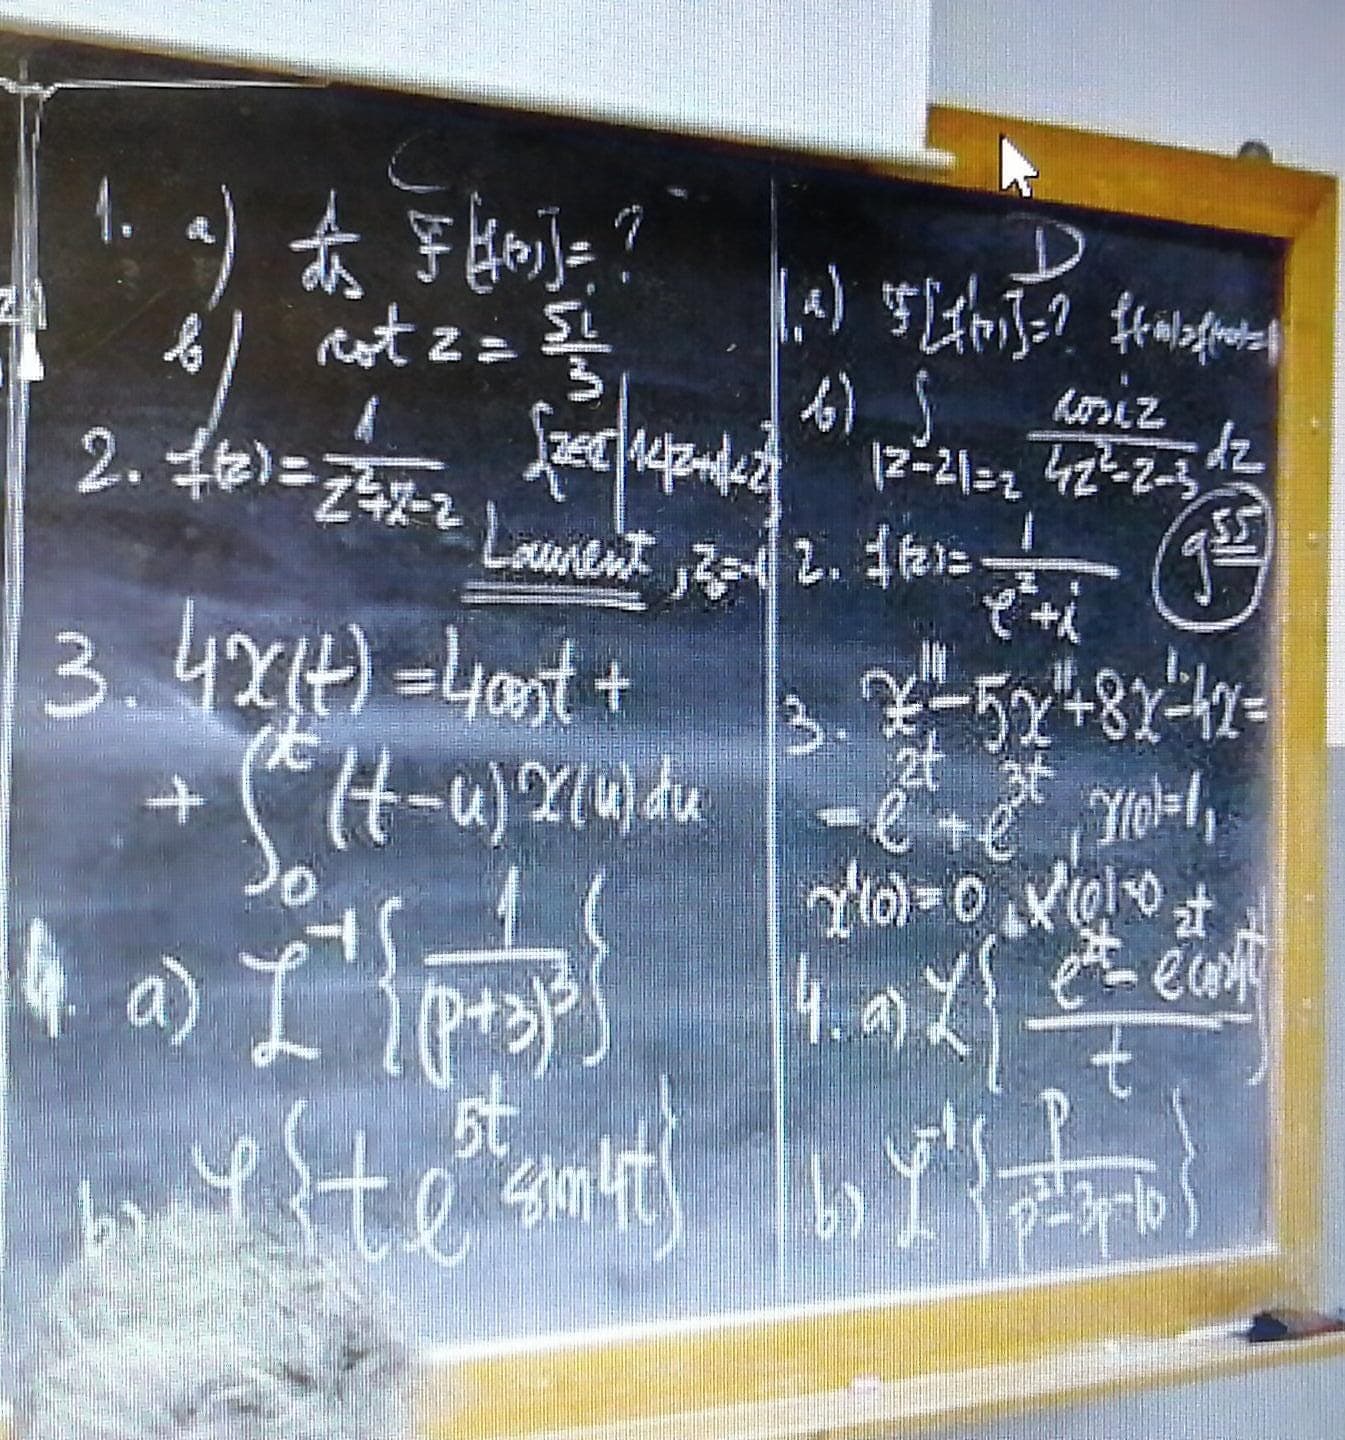 C
1. a) d/ds F[f(x)] = ?
b) cot z = 5i/3
2. f(z) = 1/(z²+z-2) {z∈C | 1<|z+1|<2}
Laurent
3. 4x(t) = 4cost +
+ ∫₀ᵗ (t-u) x(u) du
4. a) L⁻¹ { 1/(p+3)³ }
b) L { t e^(5t) sin 4t }
D
1. a) F[f'(x)] = ?
b) ∫_(|z-2|=2) cos iz/(4z²-z-3) dz
2. f(z) = 1/(e^z+i)
9⁵⁵
3. x''' - 5x'' + 8x' - 4x =
- e^(2t) + e^(3t), x(0)=1,
x'(0) = 0, x''(0)=0
4. a) L {
t
b) L⁻¹ { p/(p²-3p-10) }